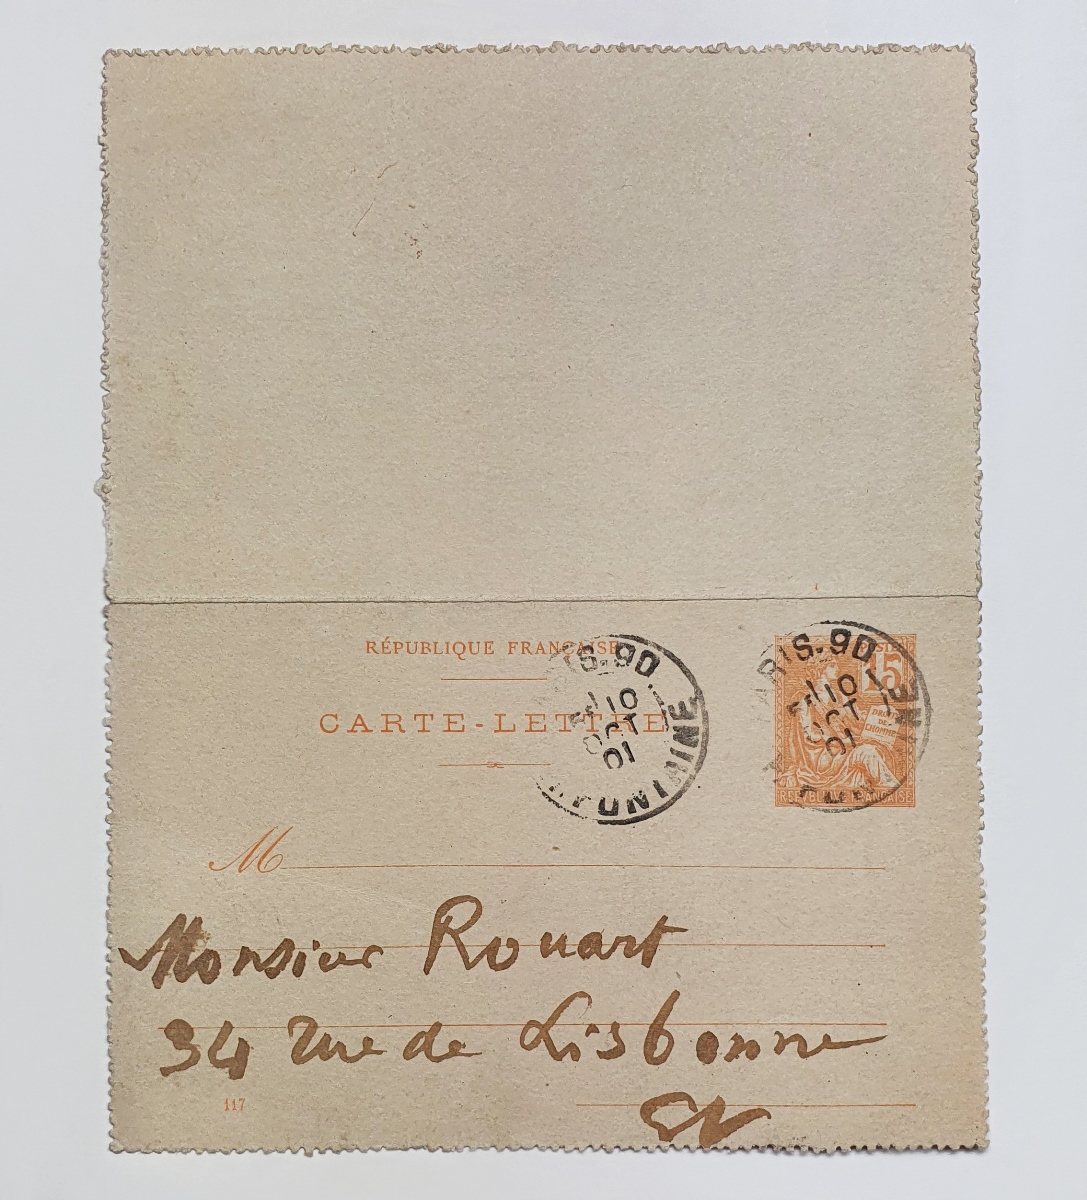 RÉPUBLIQUE FRANÇAISE
CARTE-LETTRE
PARIS-90
10
OCT
01
POSTES
15
DROITS
DE
L'HOMME
REPUBLIQUE FRANÇAISE
ARIS-90
10
OCT
01
M
Monsieur Rouart
34 rue de Lisbonne
117
EV